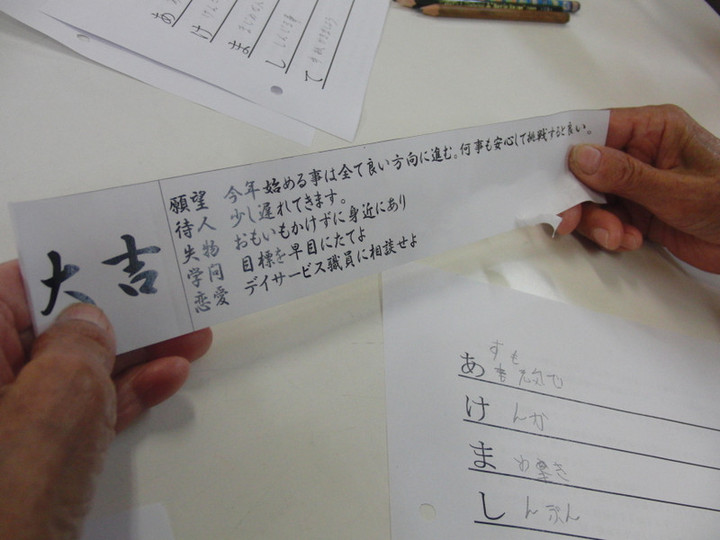 あ
け
ま
し
て
大吉
願望 今年始める事は全て良い方向に進む。何事も安心して挑戦すると良い。
待人 少し遅れてきます。
失物 おもいもかけずに身近にあり
学問 目標を早目にたてよ
恋愛 デイサービス職員に相談せよ
すも
あ
け んか
ま わ
し んぶん